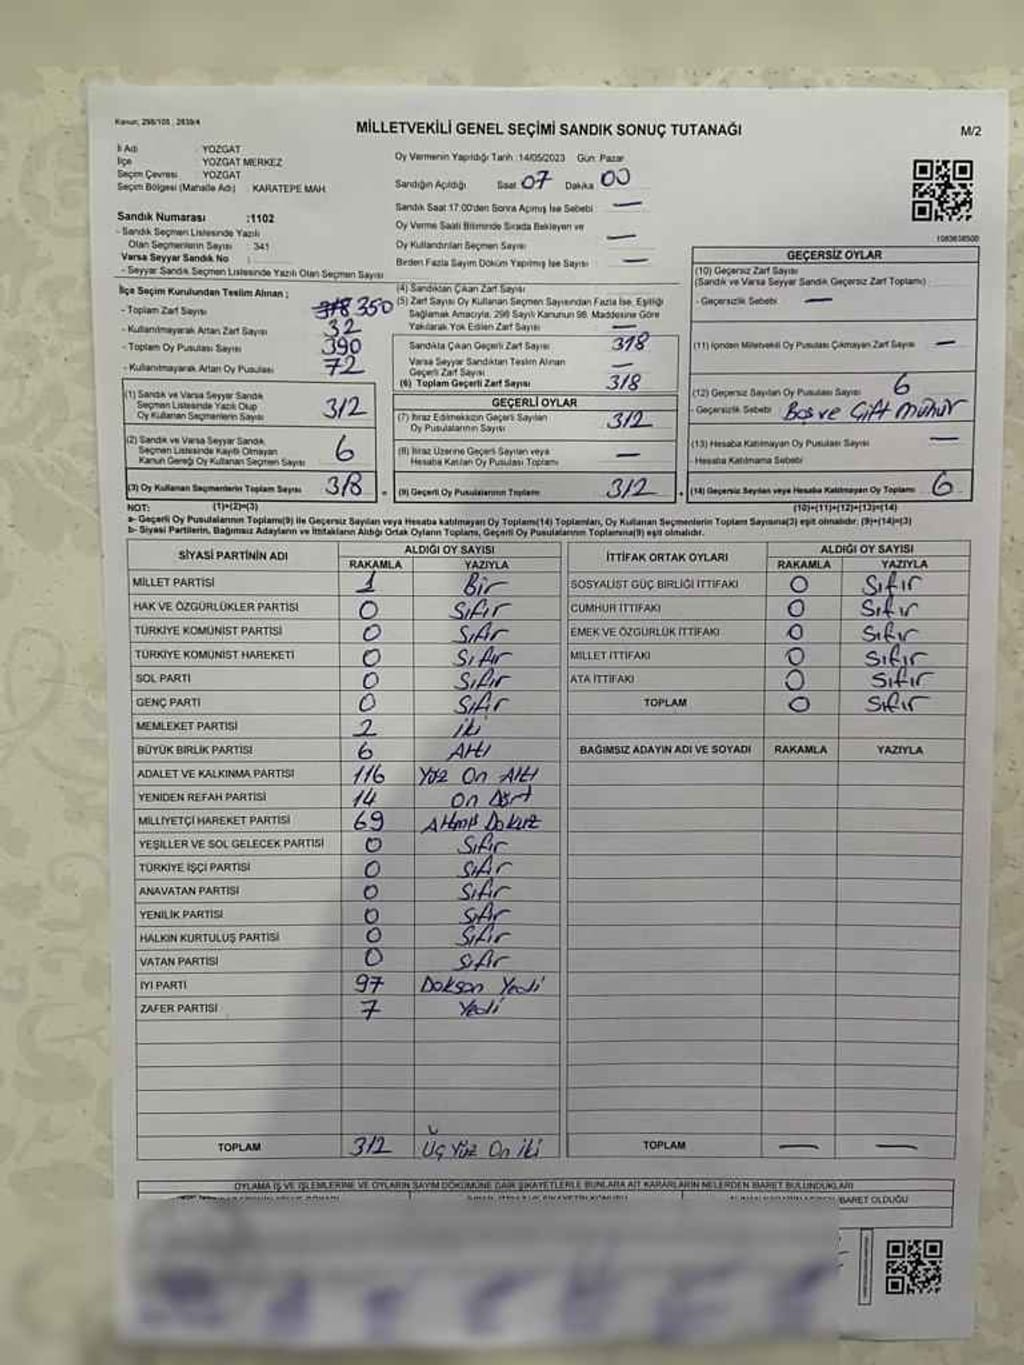 Kanun; 298/105 ; 2839/4
MİLLETVEKİLİ GENEL SEÇİMİ SANDIK SONUÇ TUTANAĞI
M/2
İl Adı : YOZGAT
İlçe : YOZGAT MERKEZ
Seçim Çevresi : YOZGAT
Seçim Bölgesi (Mahalle Adı) : KARATEPE MAH.
Sandık Numarası :1102
- Sandık Seçmen Listesinde Yazılı
Olan Seçmenlerin Sayısı : 341
Varsa Seyyar Sandık No :
- Seyyar Sandık Seçmen Listesinde Yazılı Olan Seçmen Sayısı
İlçe Seçim Kurulundan Teslim Alınan ;
- Toplam Zarf Sayısı 318 350
- Kullanılmayarak Artan Zarf Sayısı 32
- Toplam Oy Pusulası Sayısı 390
- Kullanılmayarak Artan Oy Pusulası 72
(1) Sandık ve Varsa Seyyar Sandık
Seçmen Listesinde Yazılı Olup
Oy Kullanan Seçmenlerin Sayısı 312
(2) Sandık ve Varsa Seyyar Sandık
Seçmen Listesinde Kayıtlı Olmayan
Kanun Gereği Oy Kullanan Seçmen Sayısı 6
(3) Oy Kullanan Seçmenlerin Toplam Sayısı 318
Oy Vermenin Yapıldığı Tarih :14/05/2023 Gün: Pazar
Sandığın Açıldığı Saat: 07 Dakika 00
Sandık Saat 17:00'den Sonra Açılmış İse Sebebi : —
Oy Verme Saati Bitiminde Sırada Bekleyen ve
Oy Kullandırılan Seçmen Sayısı —
Birden Fazla Sayım Döküm Yapılmış İse Sayısı —
(4) Sandıktan Çıkan Zarf Sayısı
(5) Zarf Sayısı Oy Kullanan Seçmen Sayısından Fazla İse, Eşitliği
Sağlamak Amacıyla, 298 Sayılı Kanunun 98. Maddesine Göre
Yakılarak Yok Edilen Zarf Sayısı —
Sandıkta Çıkan Geçerli Zarf Sayısı 318
Varsa Seyyar Sandıktan Teslim Alınan
Geçerli Zarf Sayısı —
(6) Toplam Geçerli Zarf Sayısı 318
GEÇERLİ OYLAR
(7) İtiraz Edilmeksizin Geçerli Sayılan
Oy Pusulalarının Sayısı 312
(8) İtiraz Üzerine Geçerli Sayılan veya
Hesaba Katılan Oy Pusulası Toplamı —
(9) Geçerli Oy Pusulalarının Toplamı 312
1083638500
GEÇERSİZ OYLAR
(10) Geçersiz Zarf Sayısı
(Sandık ve Varsa Seyyar Sandık Geçersiz Zarf Toplamı)
- Geçersizlik Sebebi —
(11) İçinden Milletvekili Oy Pusulası Çıkmayan Zarf Sayısı —
(12) Geçersiz Sayılan Oy Pusulası Sayısı 6
- Geçersizlik Sebebi Boş ve Çift mühür
(13) Hesaba Katılmayan Oy Pusulası Sayısı —
- Hesaba Katılmama Sebebi
(14) Geçersiz Sayılan veya Hesaba Katılmayan Oy Toplamı 6
NOT: (1)+(2)=(3) (10)+(11)+(12)+(13)=(14)
a- Geçerli Oy Pusulalarının Toplamı(9) ile Geçersiz Sayılan veya Hesaba katılmayan Oy Toplamı(14) Toplamları, Oy Kullanan Seçmenlerin Toplam Sayısına(3) eşit olmalıdır. (9)+(14)=(3)
b- Siyasi Partilerin, Bağımsız Adayların ve İttifakların Aldığı Ortak Oyların Toplamı, Geçerli Oy Pusulalarının Toplamına(9) eşit olmalıdır.
SİYASİ PARTİNİN ADI ALDIĞI OY SAYISI
RAKAMLA YAZIYLA
MİLLET PARTİSİ 1 Bir
HAK VE ÖZGÜRLÜKLER PARTİSİ 0 Sıfır
TÜRKİYE KOMÜNİST PARTİSİ 0 Sıfır
TÜRKİYE KOMÜNİST HAREKETİ 0 Sıfır
SOL PARTİ 0 Sıfır
GENÇ PARTİ 0 Sıfır
MEMLEKET PARTİSİ 2 iki
BÜYÜK BİRLİK PARTİSİ 6 Altı
ADALET VE KALKINMA PARTİSİ 116 Yüz On Altı
YENİDEN REFAH PARTİSİ 14 On Dört
MİLLİYETÇİ HAREKET PARTİSİ 69 Altmış Dokuz
YEŞİLLER VE SOL GELECEK PARTİSİ 0 Sıfır
TÜRKİYE İŞÇİ PARTİSİ 0 Sıfır
ANAVATAN PARTİSİ 0 Sıfır
YENİLİK PARTİSİ 0 Sıfır
HALKIN KURTULUŞ PARTİSİ 0 Sıfır
VATAN PARTİSİ 0 Sıfır
İYİ PARTİ 97 Doksan Yedi
ZAFER PARTİSİ 7 Yedi
TOPLAM 312 Üç Yüz On iki
İTTİFAK ORTAK OYLARI ALDIĞI OY SAYISI
RAKAMLA YAZIYLA
SOSYALİST GÜÇ BİRLİĞİ İTTİFAKI 0 Sıfır
CUMHUR İTTİFAKI 0 Sıfır
EMEK VE ÖZGÜRLÜK İTTİFAKI 0 Sıfır
MİLLET İTTİFAKI 0 Sıfır
ATA İTTİFAKI 0 Sıfır
TOPLAM 0 Sıfır
BAĞIMSIZ ADAYIN ADI VE SOYADI RAKAMLA YAZIYLA
TOPLAM — —
OYLAMA İŞ VE İŞLEMLERİNE VE OYLARIN SAYIM DÖKÜMÜNE DAİR ŞİKAYETLERLE BUNLARA AİT KARARLARIN NELERDEN İBARET BULUNDUKLARI
İBARET OLDUĞU